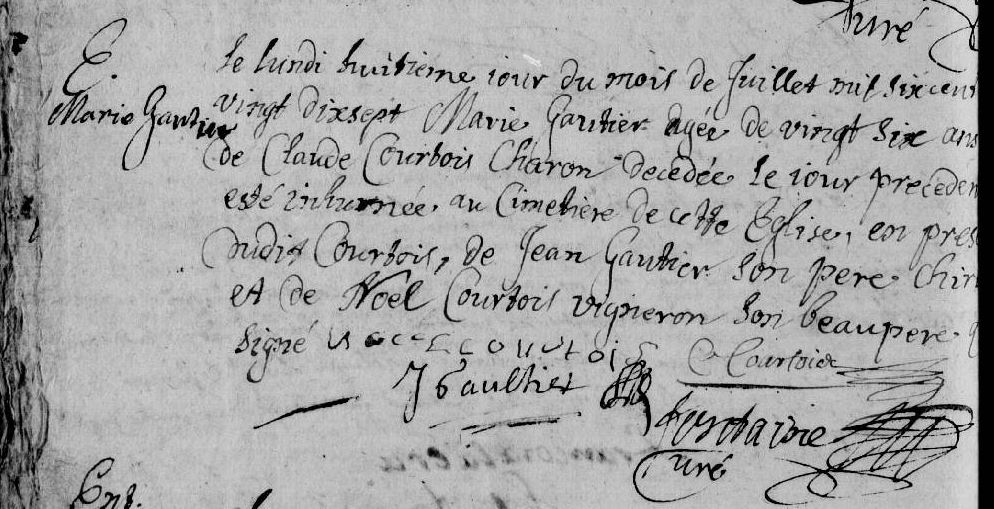 Curé
E.
Marie Gautier
le lundi huitieme iour du mois de Juillet mil six cent
vingt dixsept Marie Gautier agée de vingt six ans
de Claude Courtois Charon decedée le iour preceden
esté inhumée au Cimetiere de cette Eglise, en pres
dudit Courtois, de Jean Gautier son pere Chir
et de Noel Courtois vigneron son beaupere
signé
courtois
C Courtois
J Gaultier
fontaine
Curé
Ent.